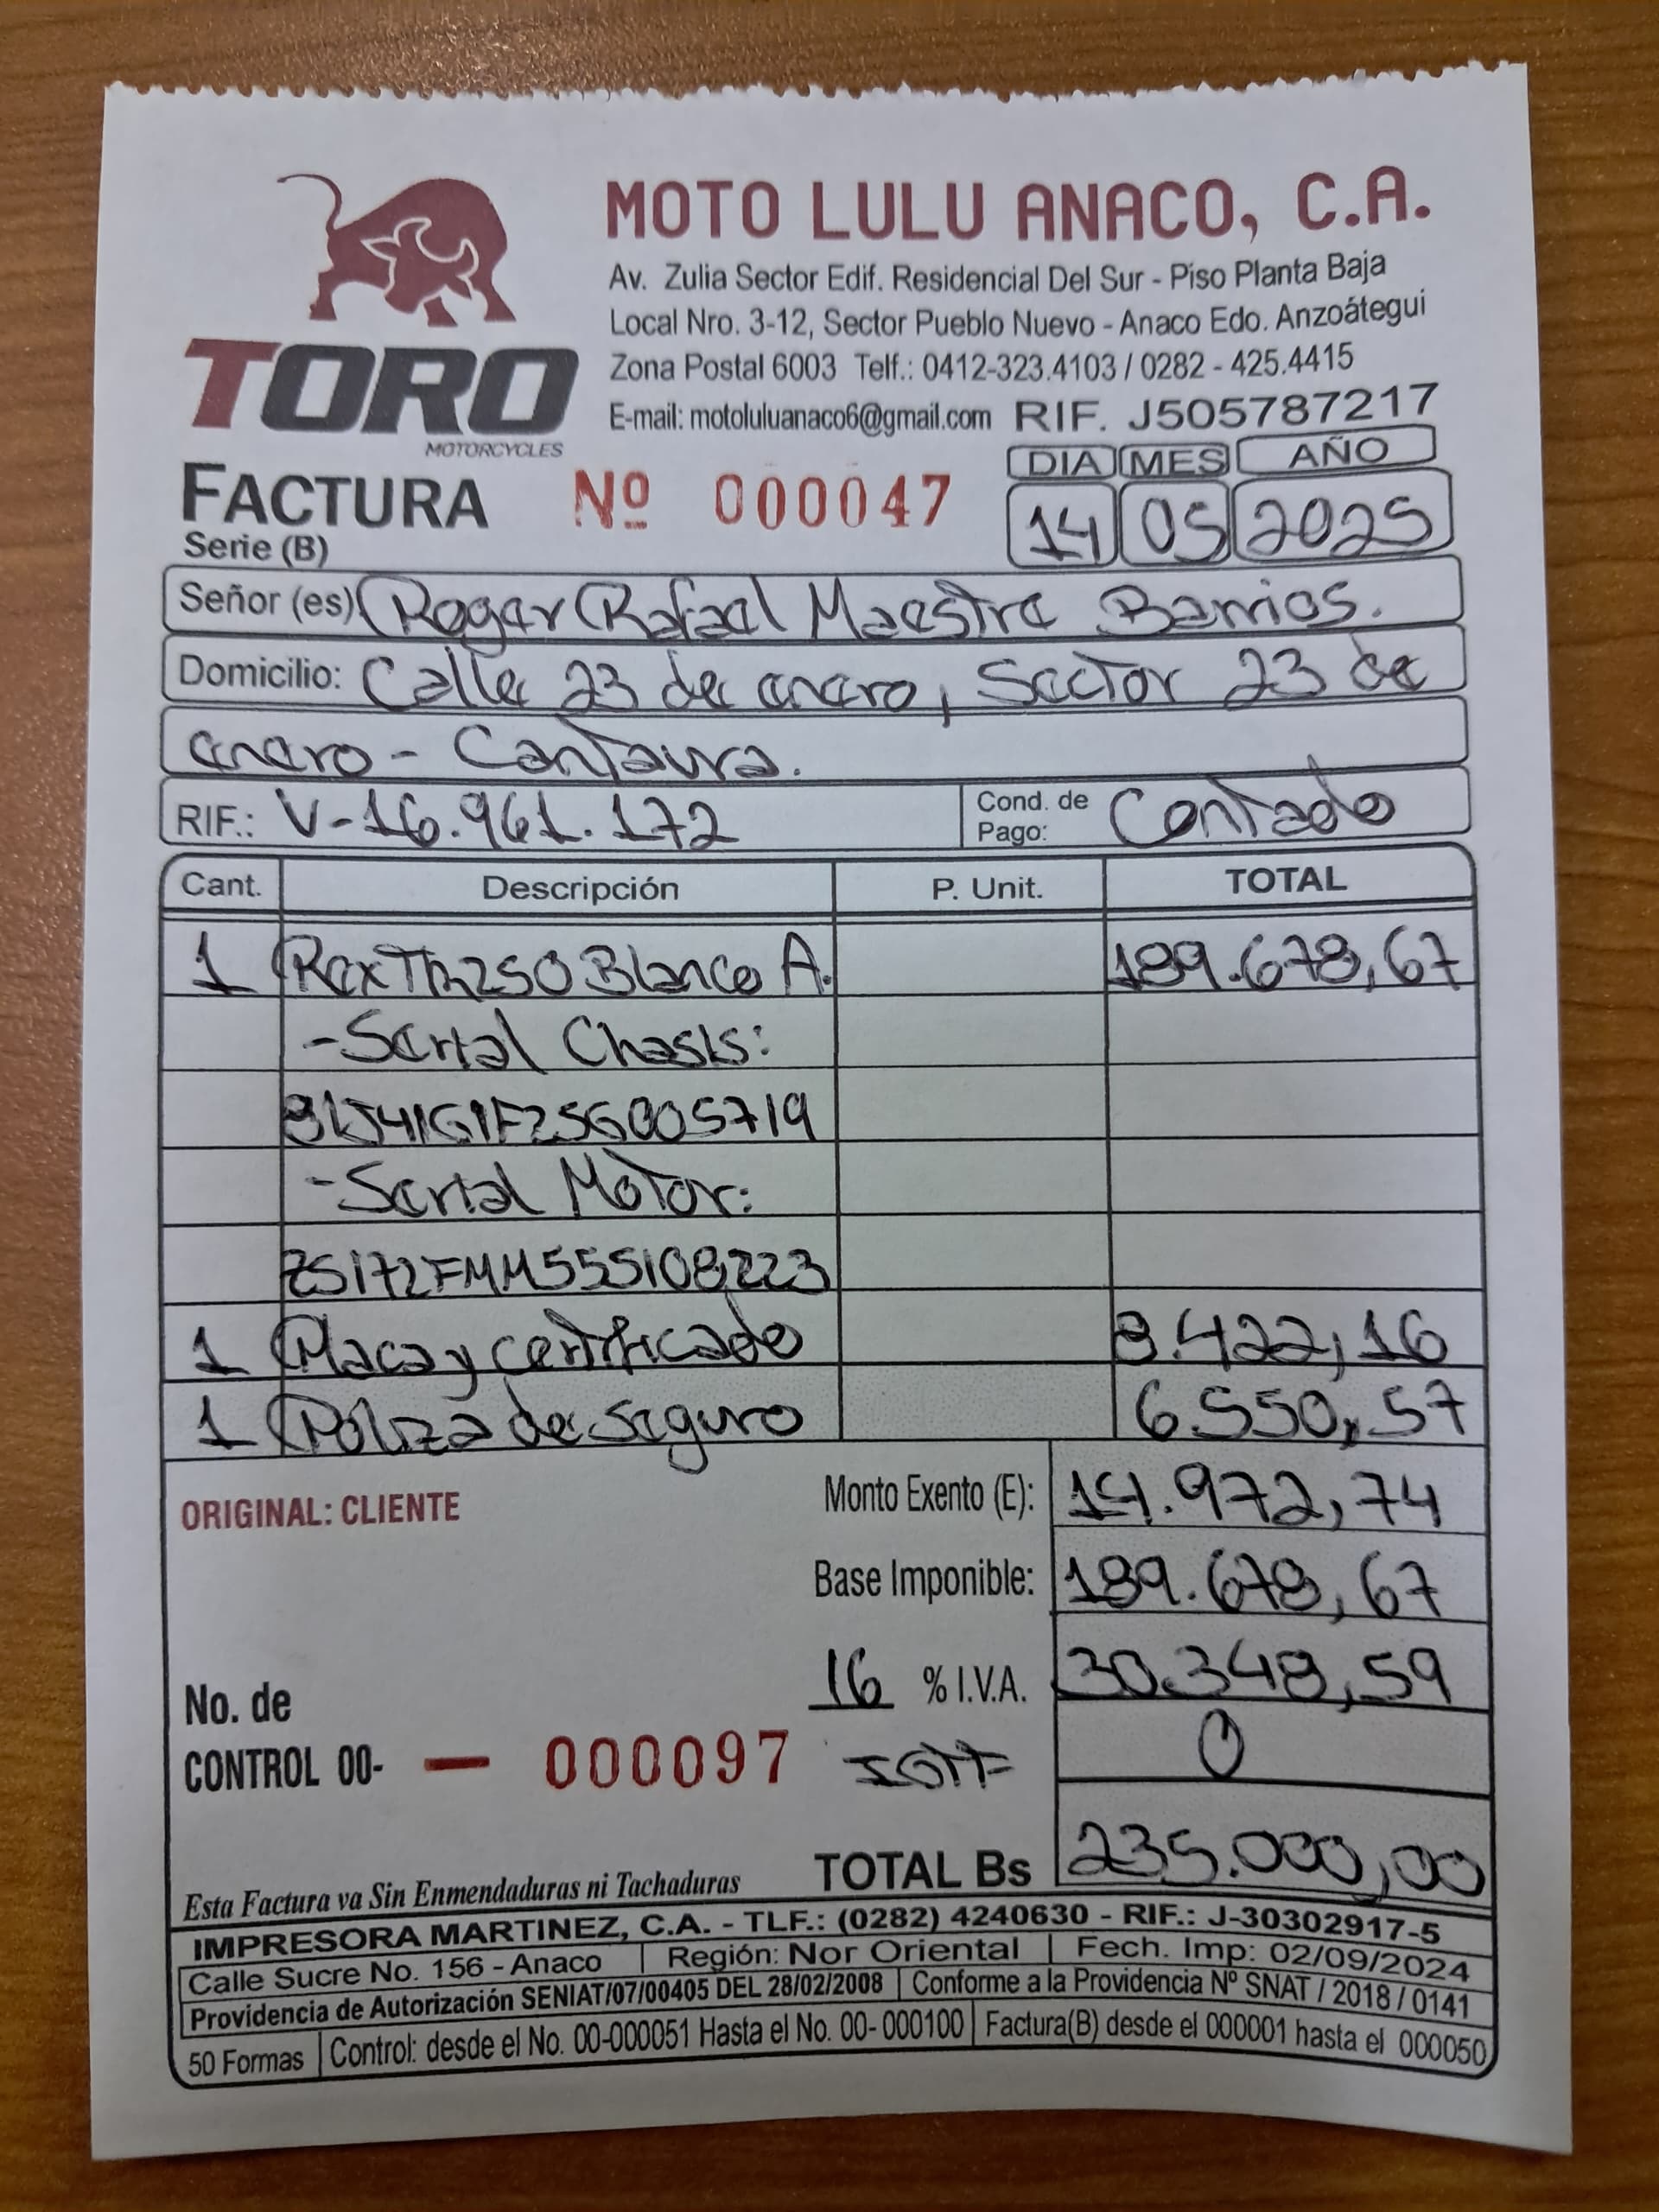 MOTO LULU ANACO, C.A.
Av. Zulia Sector Edif. Residencial Del Sur - Piso Planta Baja
Local Nro. 3-12, Sector Pueblo Nuevo - Anaco Edo. Anzoátegui
Zona Postal 6003 Telf.: 0412-323.4103 / 0282 - 425.4415
E-mail: motoluluanaco6@gmail.com RIF. J505787217
TORO
MOTORCYCLES
DIA MES AÑO
FACTURA Nº 000047 14 05 2025
Serie (B)
Señor (es) Rogar Rafael Maestre Barrios.
Domicilio: Calle 23 de enero, Sector 23 de
enero - Cantaura.
RIF.: V-16.961.172 Cond. de Pago: Contado
Cant. Descripción P. Unit. TOTAL
1 Rex TR250 Blanco A. 189.678,67
- Serial Chasis:
- Serial Motor:
ZS172FMM555108223
1 Placa y certificado 8.422,16
1 Poliza de seguro 6.550,57
ORIGINAL: CLIENTE Monto Exento (E): 14.972,74
Base Imponible: 189.678,67
16 % I.V.A. 30.348,59
No. de
CONTROL 00- — 000097 IGTF 0
TOTAL Bs 235.000,00
Esta Factura va Sin Enmendaduras ni Tachaduras
IMPRESORA MARTINEZ, C.A. - TLF.: (0282) 4240630 - RIF.: J-30302917-5
Calle Sucre No. 156 - Anaco Región: Nor Oriental Fech. Imp: 02/09/2024
Providencia de Autorización SENIAT/07/00405 DEL 28/02/2008 Conforme a la Providencia Nº SNAT / 2018 / 0141
50 Formas Control: desde el No. 00-000051 Hasta el No. 00- 000100 Factura(B) desde el 000001 hasta el 000050